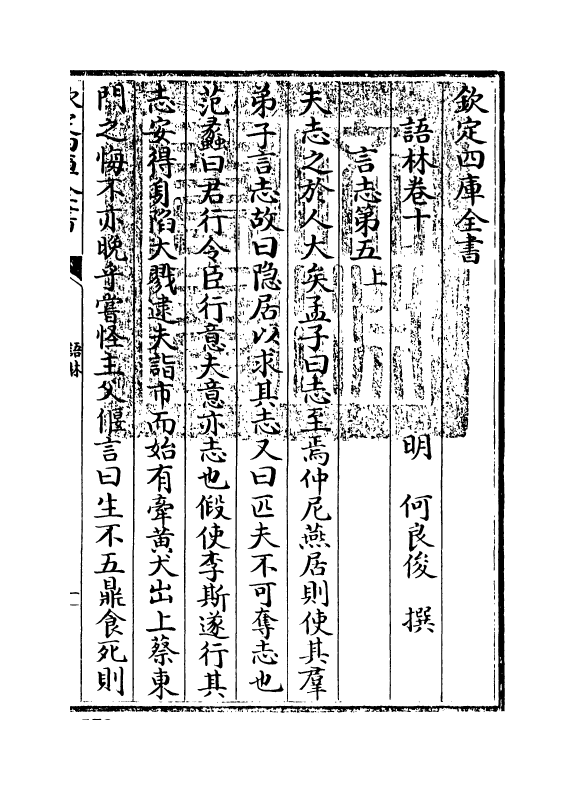 欽定四庫全書
語林卷十
明 何良俊 撰
言志第五上
夫志之於人大矣孟子曰志至焉仲尼燕居則使其羣
弟子言志故曰隐居以求其志又曰匹夫不可奪志也
范蠡曰君行令臣行意夫意亦志也假使李斯遂行其
志安得罹陷大戮逮夫詣市而始有牽黄犬出上蔡東
門之悔不亦晚乎嘗怪主父偃言曰生不五鼎食死則
語林
一